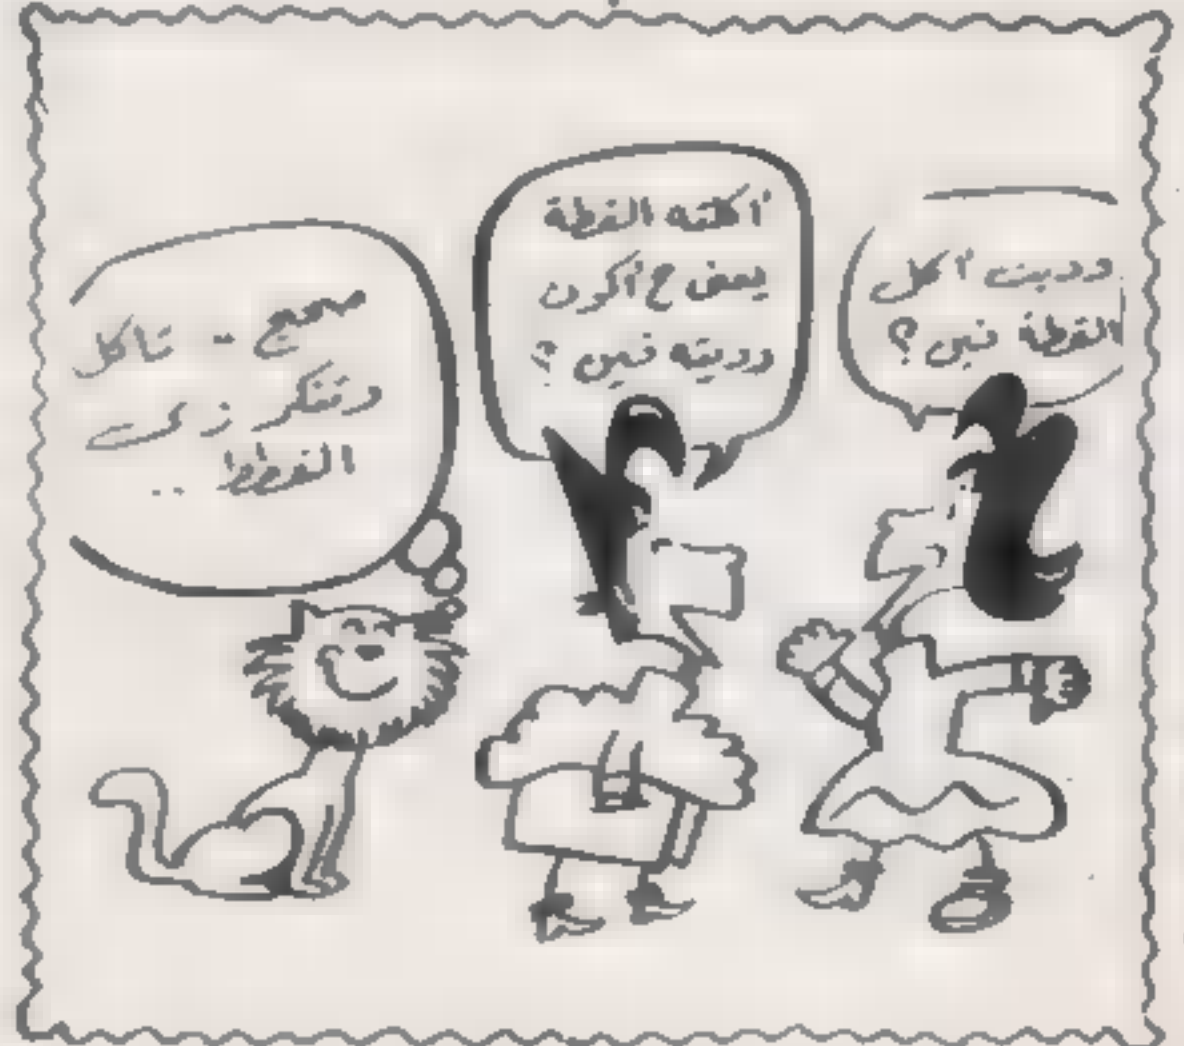 وديت أكل
القطة فين؟
أكلته القطة
يعنى ح أكون
وديته فين؟
صحيح - تاكل
وتنكر زى
القطط ..